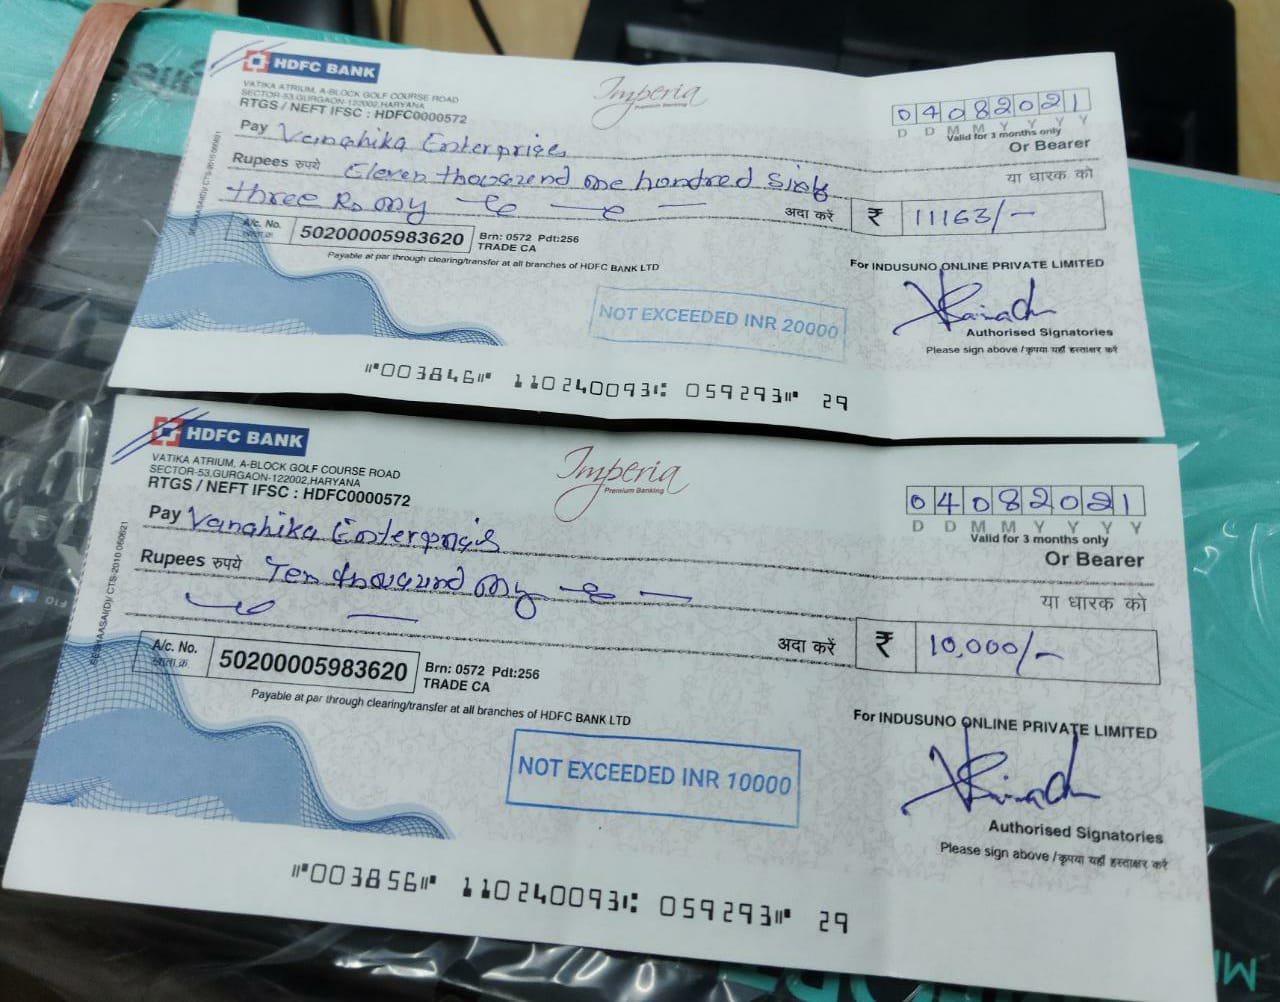 HDFC BANK
Imperia
Premium Banking
VATIKA ATRIUM, A-BLOCK GOLF COURSE ROAD
SECTOR-53,GURGAON-122002,HARYANA
RTGS / NEFT IFSC : HDFC0000572
04082021
D D M M Y Y Y Y
Valid for 3 months only
Pay Vanahika Enterprises
Or Bearer
या धारक को
Rupees रुपये Eleven thousand one hundred Sixty
three Rs only
अदा करें ₹ 11163/-
A/c. No. 50200005983620 Brn: 0572 Pdt:256
TRADE CA
Payable at par through clearing/transfer at all branches of HDFC BANK LTD
For INDUSUNO ONLINE PRIVATE LIMITED
NOT EXCEEDED INR 20000
Authorised Signatories
Please sign above / कृपया यहाँ हस्ताक्षर करें
⑈003846⑈ 110240093⑆ 059293⑈ 29
HDFC BANK
Imperia
Premium Banking
VATIKA ATRIUM, A-BLOCK GOLF COURSE ROAD
SECTOR-53,GURGAON-122002,HARYANA
RTGS / NEFT IFSC : HDFC0000572
04082021
D D M M Y Y Y Y
Valid for 3 months only
Pay Vanahika Enterprises
Or Bearer
या धारक को
Rupees रुपये Ten thousand only
अदा करें ₹ 10,000/-
A/c. No. 50200005983620 Brn: 0572 Pdt:256
TRADE CA
Payable at par through clearing/transfer at all branches of HDFC BANK LTD
For INDUSUNO ONLINE PRIVATE LIMITED
NOT EXCEEDED INR 10000
Authorised Signatories
Please sign above / कृपया यहाँ हस्ताक्षर करें
⑈003856⑈ 110240093⑆ 059293⑈ 29